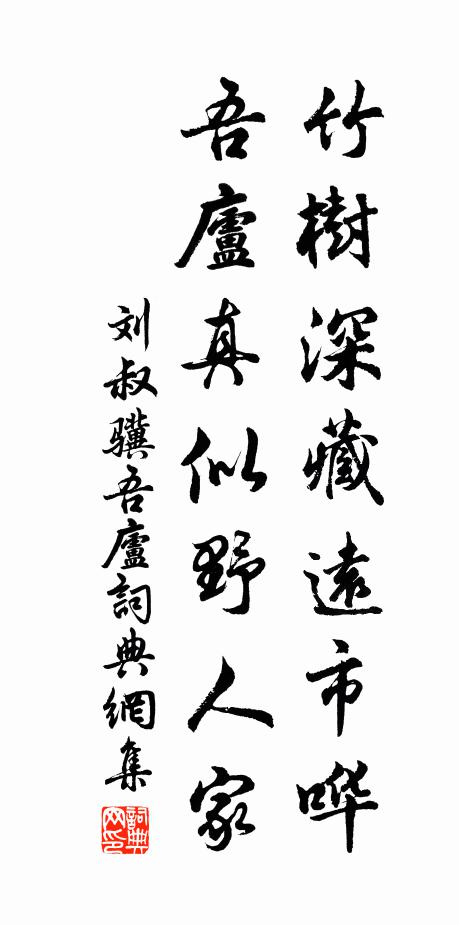 竹樹深藏遠市哗
吾廬真似野人家
刘叔骥吾廬詞典網集
詞典网印